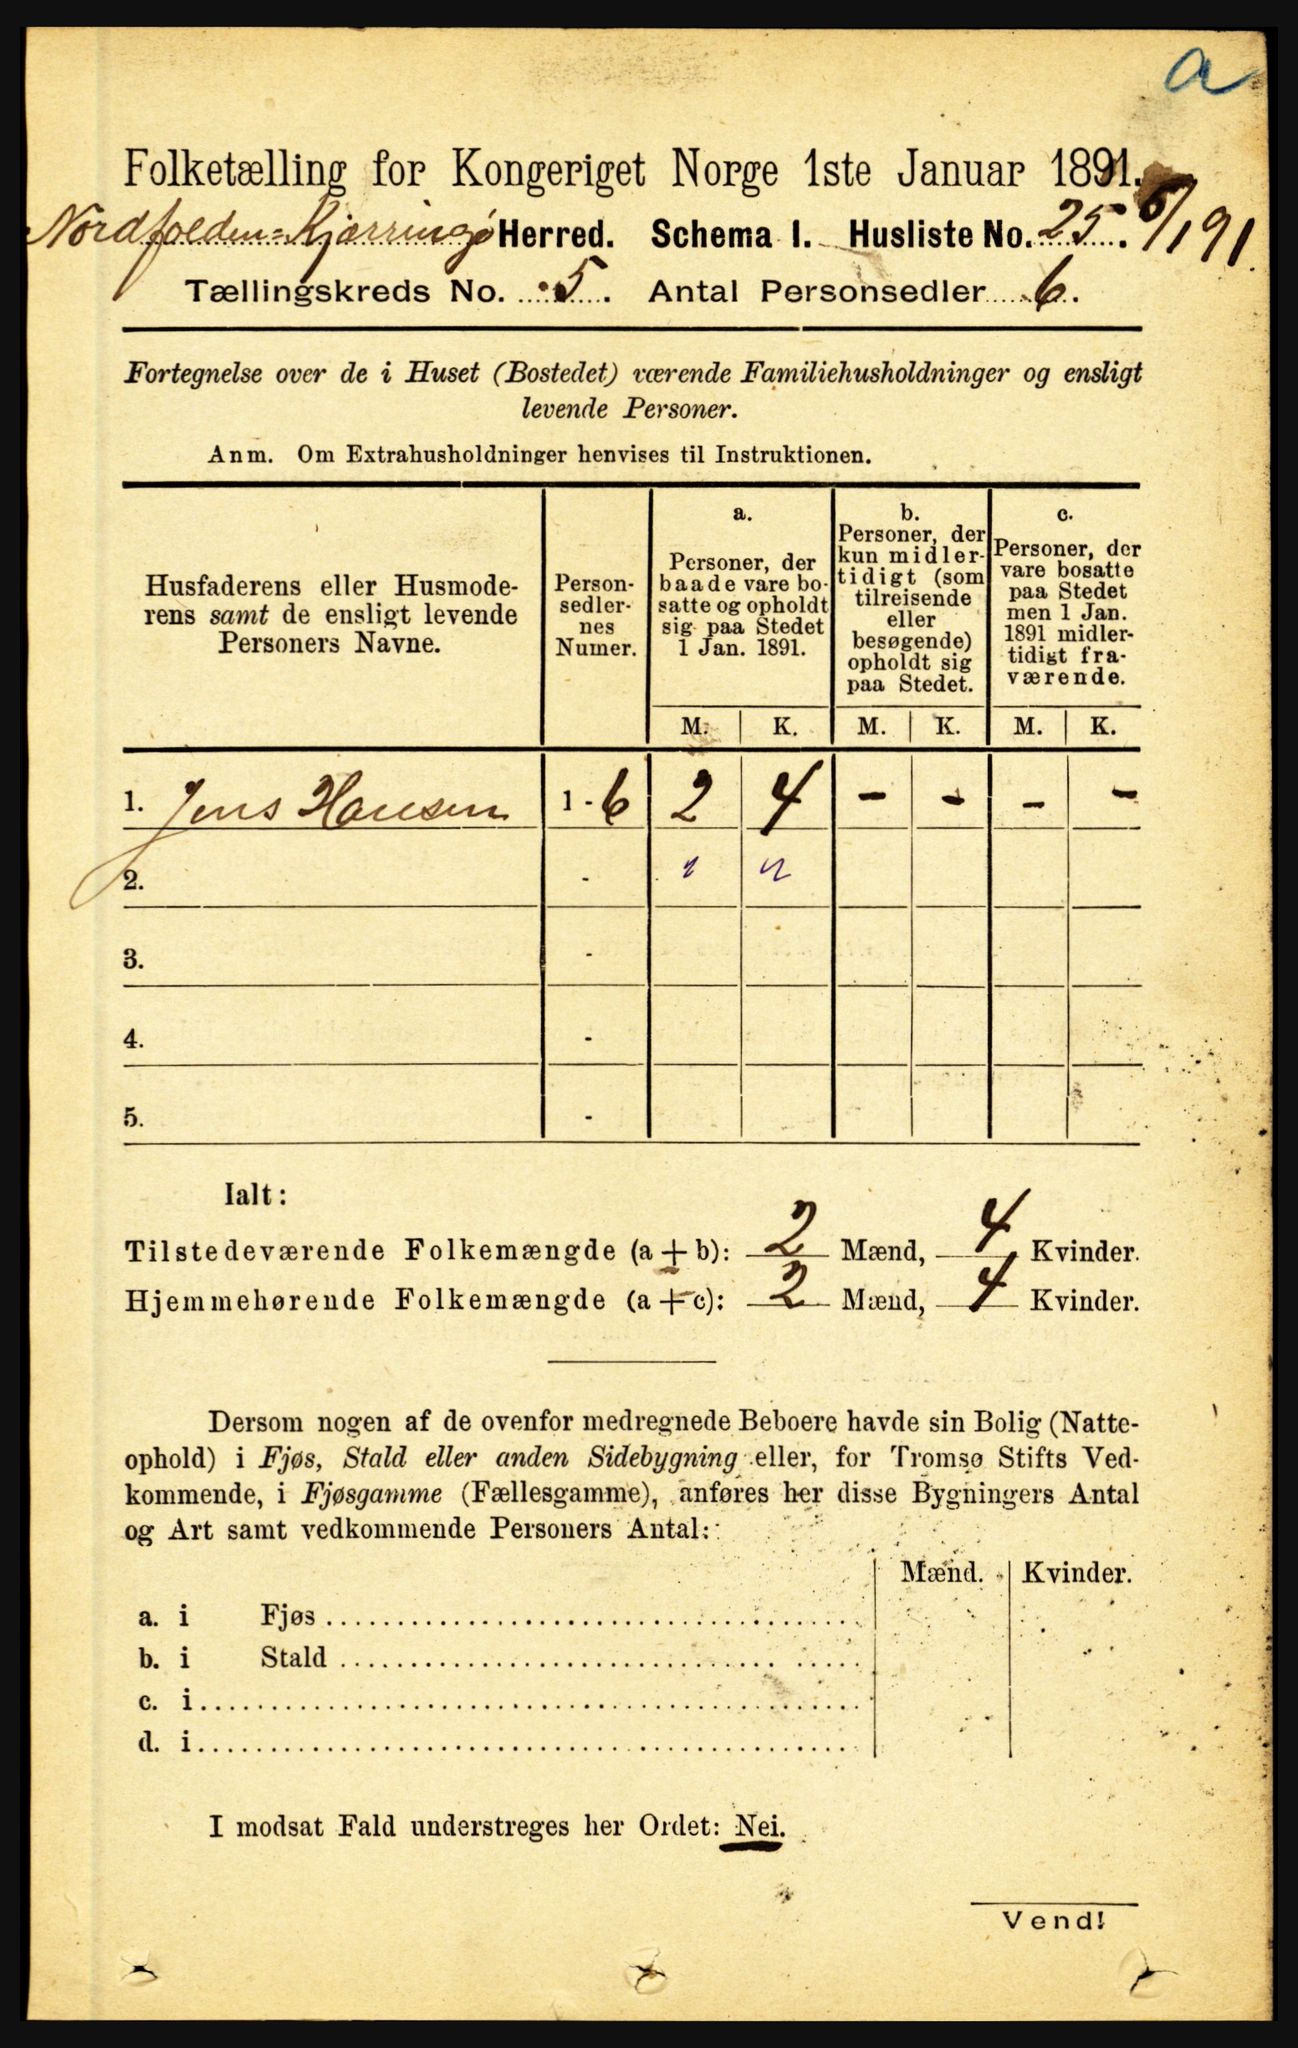 a
Folketælling for Kongeriget Norge 1ste Januar 1891.
Nordfolden=Kjærringø Herred. Schema I. Husliste No. 25. 6/1 91.
Tællingskreds No. 5. Antal Personsedler 6.
Fortegnelse over de i Huset (Bostedet) værende Familiehusholdninger og ensligt
levende Personer.
Anm. Om Extrahusholdninger henvises til Instruktionen.
Husfaderens eller Husmode-
rens samt de ensligt levende
Personers Navne.
Person-
sedler-
nes
Numer.
a.
Personer, der
baade vare bo-
satte og opholdt
sig paa Stedet
1 Jan. 1891.
b.
Personer, der
kun midler-
tidigt (som
tilreisende
eller
besøgende)
opholdt sig
paa Stedet.
c.
Personer, der
vare bosatte
paa Stedet
men 1 Jan.
1891 midler-
tidigt fra-
værende.
M. K. M. K. M. K.
1. Jens Hansen 1 - 6 2 4 - - - -
2. -
3. -
4. -
5. -
Ialt:
Tilstedeværende Folkemængde (a + b): 2 Mænd, 4 Kvinder.
Hjemmehørende Folkemængde (a + c): 2 Mænd, 4 Kvinder.
Dersom nogen af de ovenfor medregnede Beboere havde sin Bolig (Natte-
ophold) i Fjøs, Stald eller anden Sidebygning eller, for Tromsø Stifts Ved-
kommende, i Fjøsgamme (Fællesgamme), anføres her disse Bygningers Antal
og Art samt vedkommende Personers Antal:
Mænd. Kvinder.
a. i Fjøs
b. i Stald
c. i
d. i
I modsat Fald understreges her Ordet: Nei.
Vend!